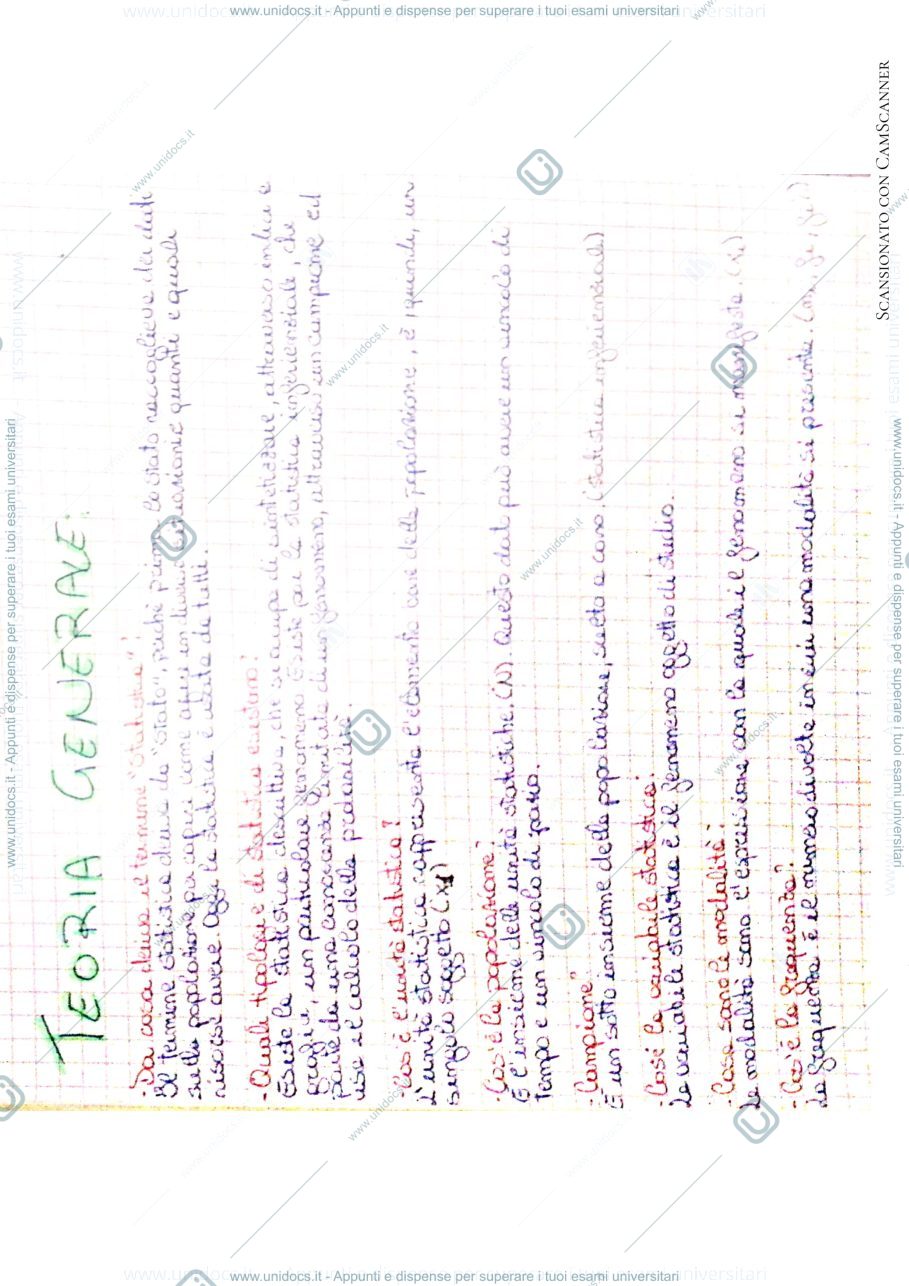 www.unidocs.it - Appunti e dispense per superare i tuoi esami universitari
TEORIA GENERALE.
- Da cosa deriva il termine "statistica"?
Il termine statistica deriva da "stato", perché prima lo stato raccoglieva dei dati
sulla popolazione per capire come agire in livelli di e quante e quali
risorse avere. Oggi la statistica è utile da tutti.
- Quali tipologie di statistica esistono?
Esiste la statistica descrittiva, che si occupa di sintetizzare, attraverso indici e
grafici, un particolare fenomeno. Esiste poi la statistica inferenziale, che
parte da una conoscenza limitata di un fenomeno, attraverso un campione ed
usa il calcolo della probabilità
- Cos'è l'unità statistica?
L'unità statistica rappresenta l'elemento base della popolazione, è, quindi, un
singolo soggetto
- Cos'è la popolazione?
È l'insieme delle unità statistiche. (N). Questo dal può avere un vincolo di
tempo e un vincolo di spazio.
- Campione"
È un sotto insieme della popolazione, scelto a caso. (statistica inferenziale)
- Cos'è la variabile statistica?
La variabile statistica è il fenomeno oggetto di studio.
- Cosa sono le modalità?
Le modalità sono l'espressione con la quale il fenomeno si manifesta. (xi)
- Cos'è la frequenza?
La frequenza è il numero di volte in cui una modalità si presenta.
SCANSIONATO CON CAMSCANNER
www.unidocs.it - Appunti e dispense per superare i tuoi esami universitari
www.unidocs.it - Appunti e dispense per superare i tuoi esami universitari
www.unidocs.it - Appunti e dispense per superare i tuoi esami universitari